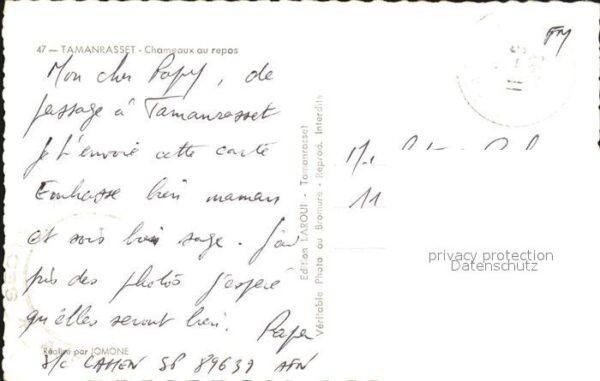 47 — TAMANRASSET - Chameaux au repos
Mon cher Papy, de
passage à Tamanrasset
je t'envoie cette carte
Embrasse bien maman
et sois bien sage. J'ai
pris des photos j'espère
qu'elles seront bien.
Papa
Réalisé par JOMONE
S/C CAHEN SP 89639 AFN
Edition LAROUI - Tamanrasset
Véritable Photo au Bromure - Reprod. Interdite
FM
11
privacy protection
Datenschutz